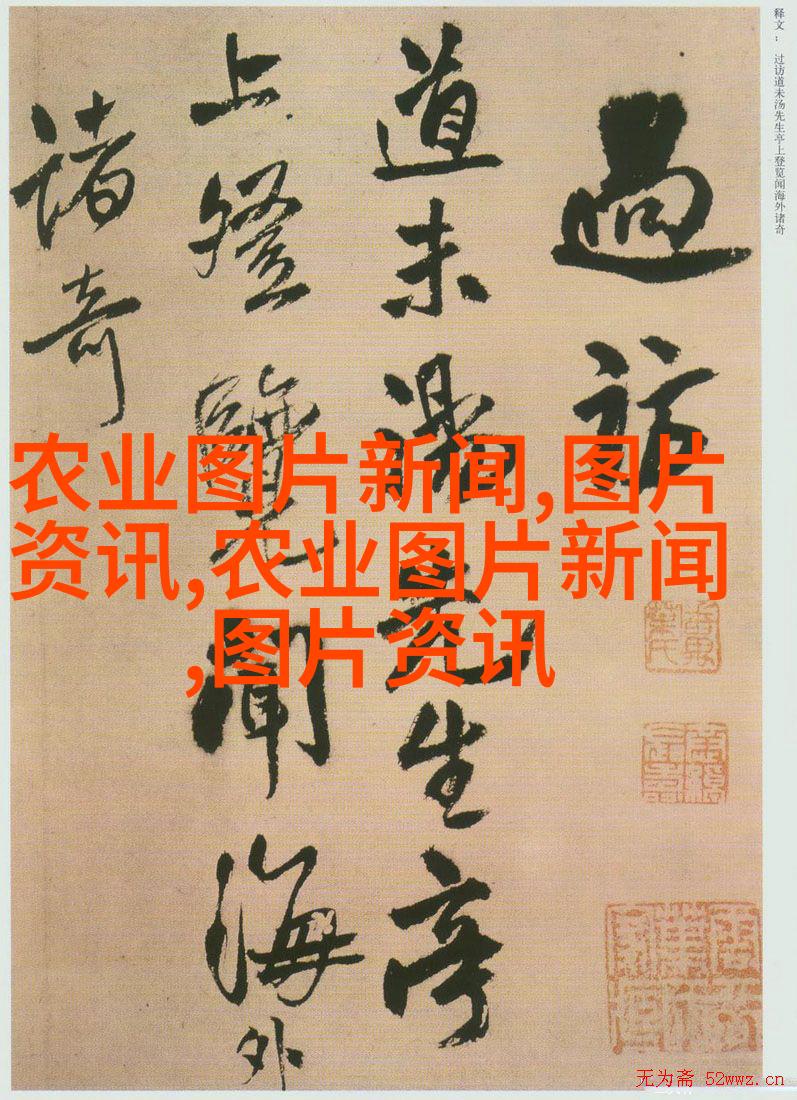 释文： 过访道未汤先生亭上登览闻海外诸奇
過訪
道未湯先生亭
上登覽聞海外
諸奇
农业图片新闻,图片
资讯,农业图片新闻
,图片资讯
无为斋 52wwz.cn